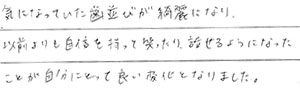 気になっていた歯並びが綺麗になり、
以前よりも自信を持って笑ったり、話せるようになった
ことが自分にとって良い変化となりました。